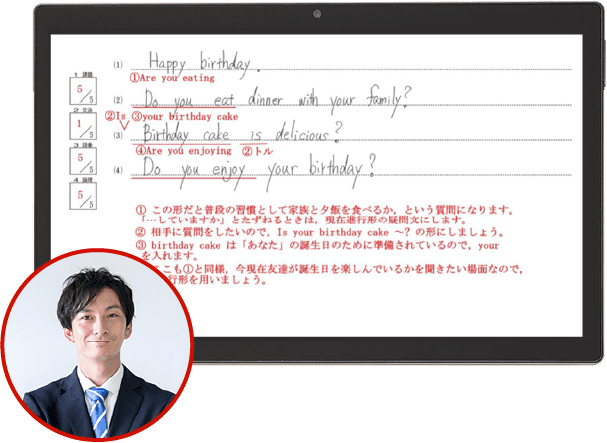 (1) Happy birthday.
①Are you eating
(2) Do you eat dinner with your family?
②Is ③your birthday cake
(3) Birthday cake is delicious?
④Are you enjoying ②トル
(4) Do you enjoy your birthday?
1 課題
5/5
2 文法
1/5
3 語彙
5/5
4 論理
5/5
① この形だと普段の習慣として家族と夕飯を食べるか，という質問になります。
「…していますか」とたずねるときは，現在進行形の疑問文にします。
② 相手に質問をしたいので，Is your birthday cake ～? の形にしましょう。
③ birthday cake は「あなた」の誕生日のために準備されているので，your
を入れます。
ここも①と同様，今現在友達が誕生日を楽しんでいるかを聞きたい場面なので，
行形を用いましょう。